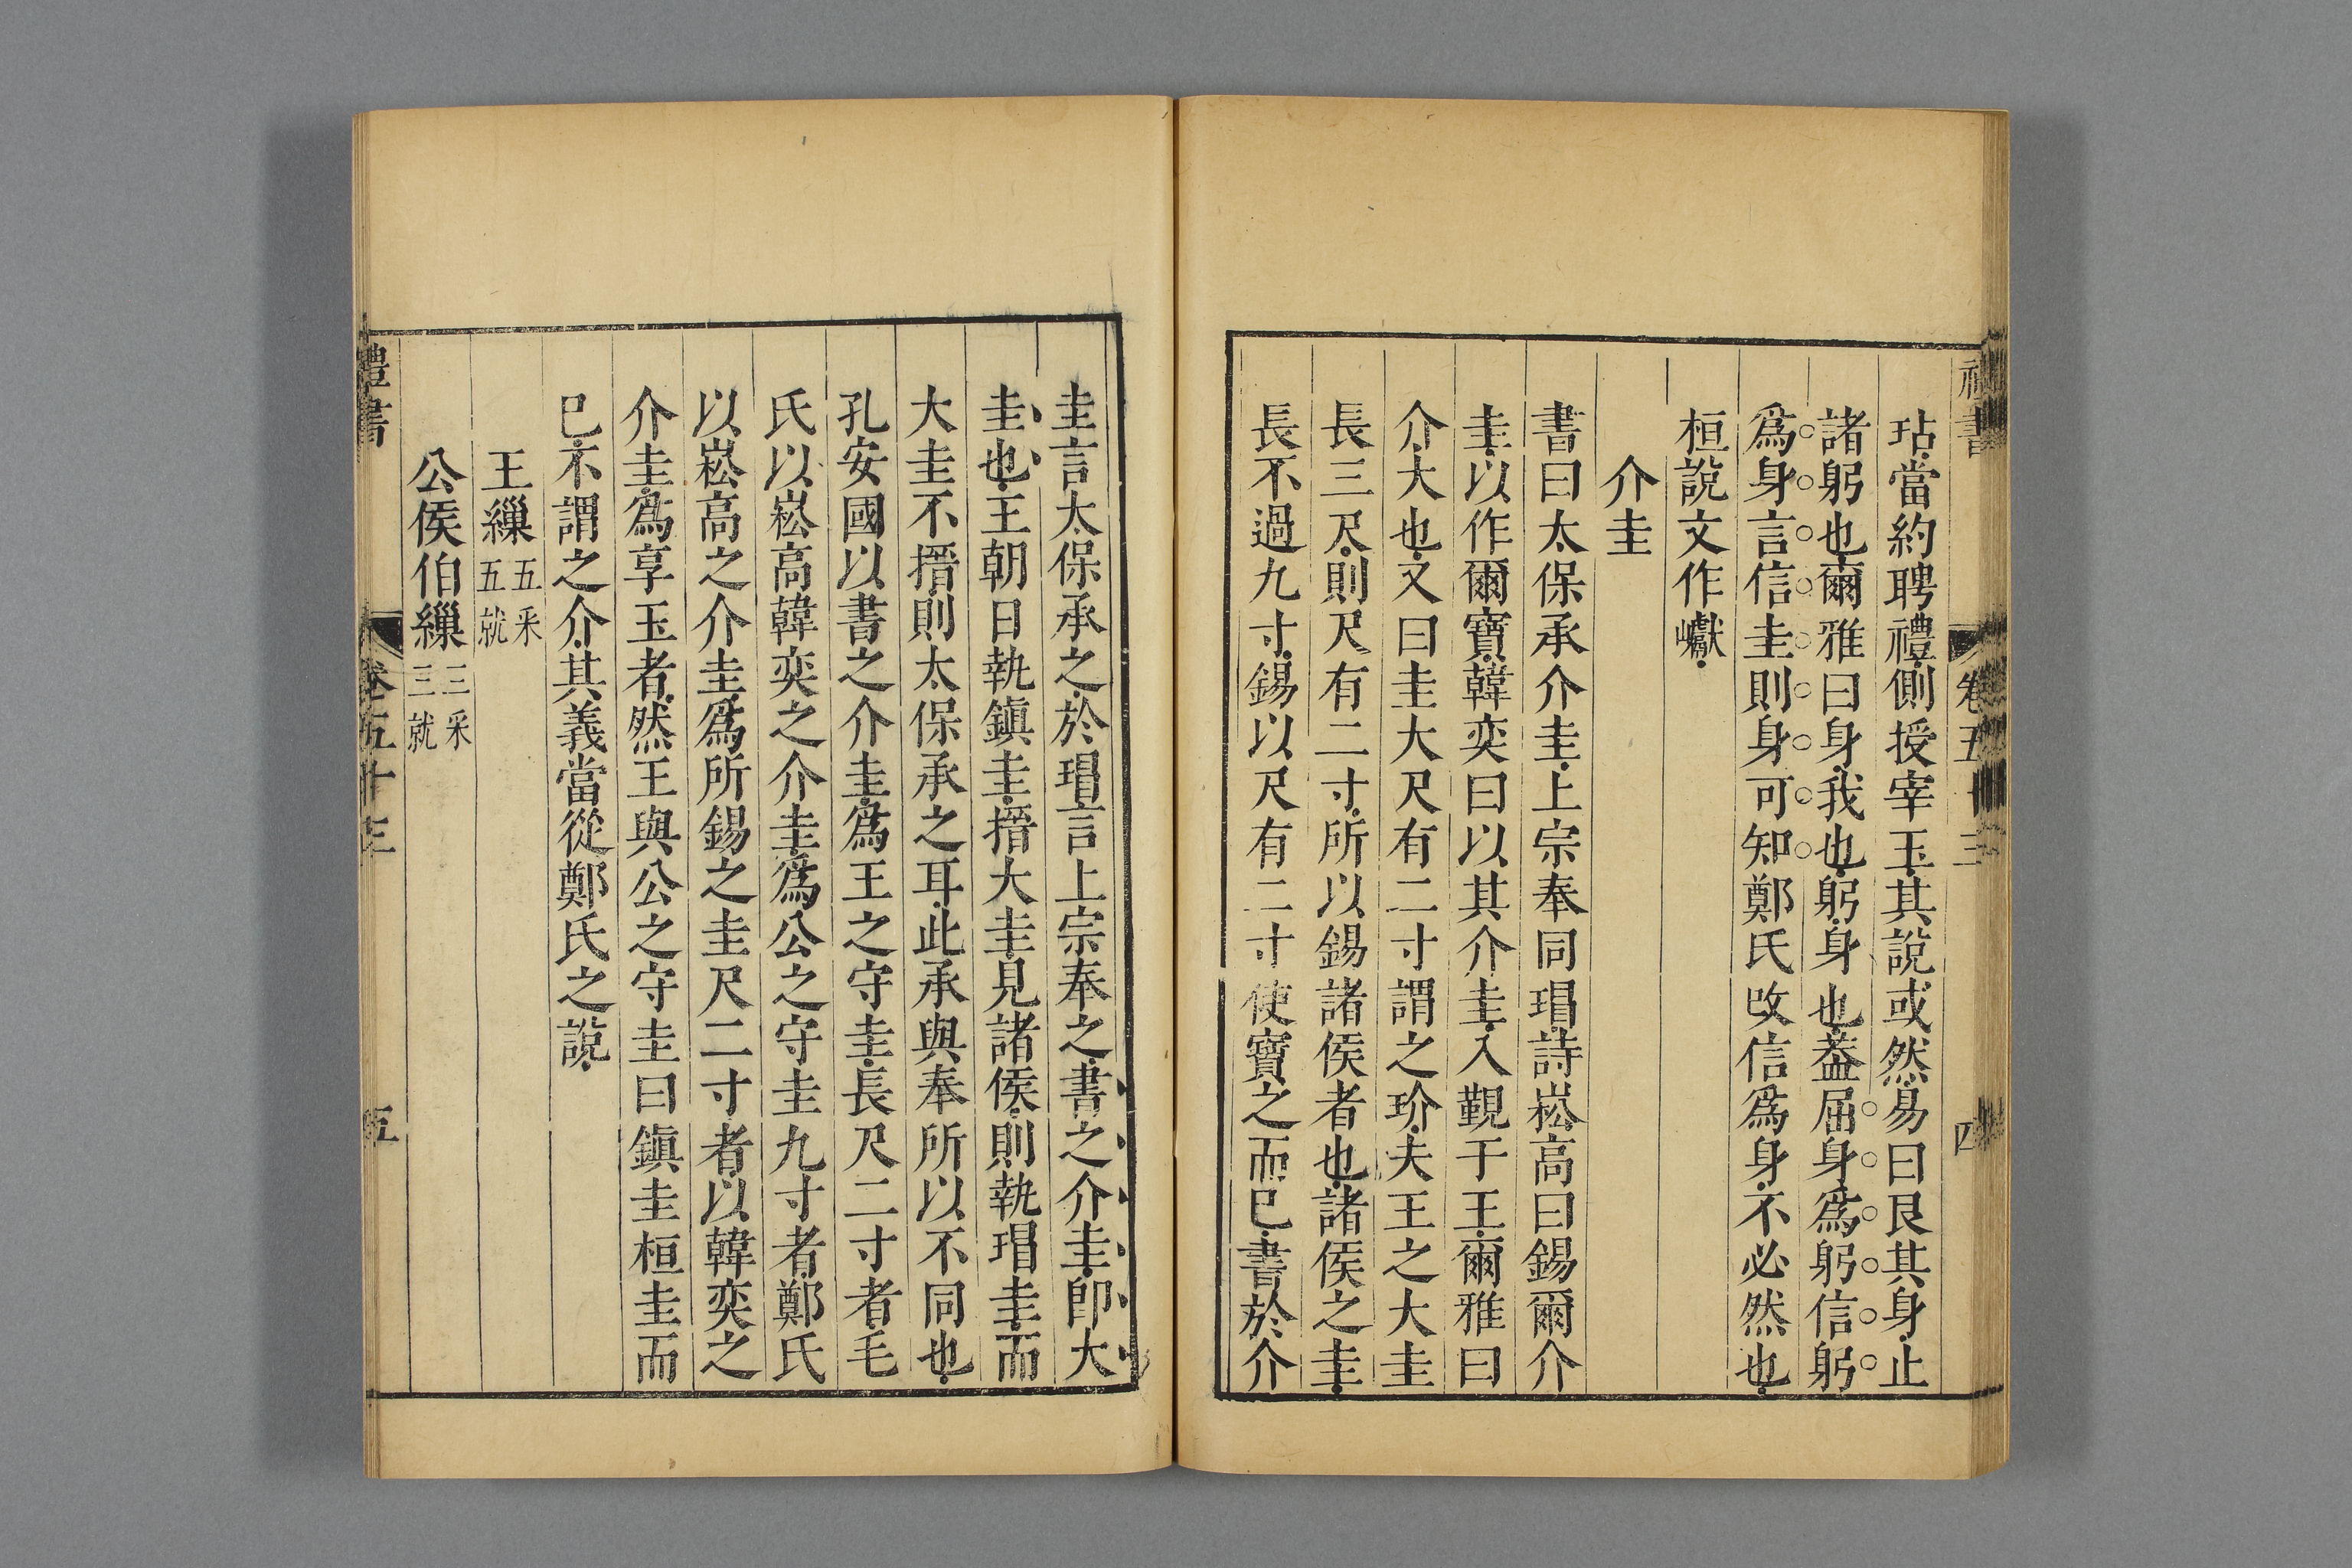 玷當約聘禮側授宰玉其說或然易曰艮其身止
諸躬也爾雅曰身我也躬身也葢屈身爲躬信躬
爲身言信圭則身可知鄭氏改信爲身不必然也
桓說文作瓛
介圭
書曰太保承介圭上宗奉同瑁詩崧高曰錫爾介
圭以作爾寶韓奕曰以其介圭入覲于王爾雅曰
介大也又曰圭大尺有二寸謂之玠夫王之大圭
長三尺則尺有二寸所以錫諸侯者也諸侯之圭
長不過九寸錫以尺有二寸使寶之而已書於介
圭言太保承之於瑁言上宗奉之書之介圭卽大
圭也王朝日執鎮圭搢大圭見諸侯則執瑁圭而
大圭不搢則太保承之耳此承與奉所以不同也
孔安國以書之介圭爲王之守圭長尺二寸者毛
氏以崧高韓奕之介圭爲公之守圭九寸者鄭氏
以崧高之介圭爲所錫之圭尺二寸者以韓奕之
介圭爲享玉者然王與公之守圭曰鎮圭桓圭而
已不謂之介其義當從鄭氏之說
王繅五采五就
公侯伯繅三采三就
禮書 卷五十三 五